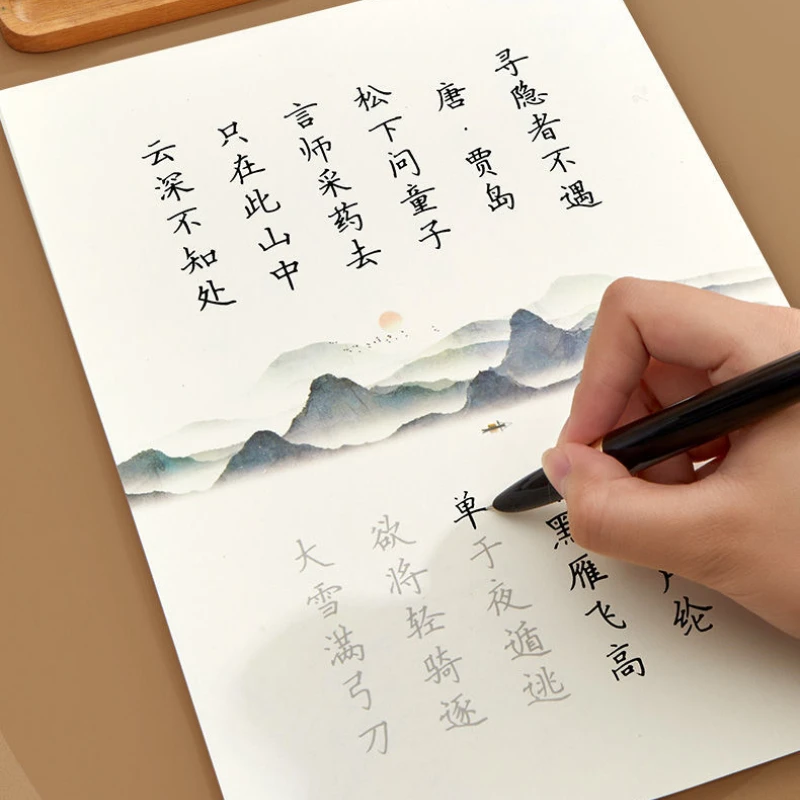 寻隐者不遇
唐·贾岛
松下问童子
言师采药去
只在此山中
云深不知处
纶
黑雁飞高
单于夜遁逃
欲将轻骑逐
大雪满弓刀